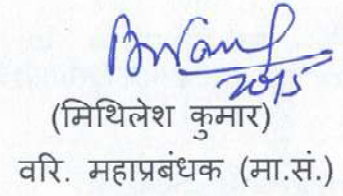 (मिथिलेश कुमार)
वरि. महाप्रबंधक (मा.सं.)